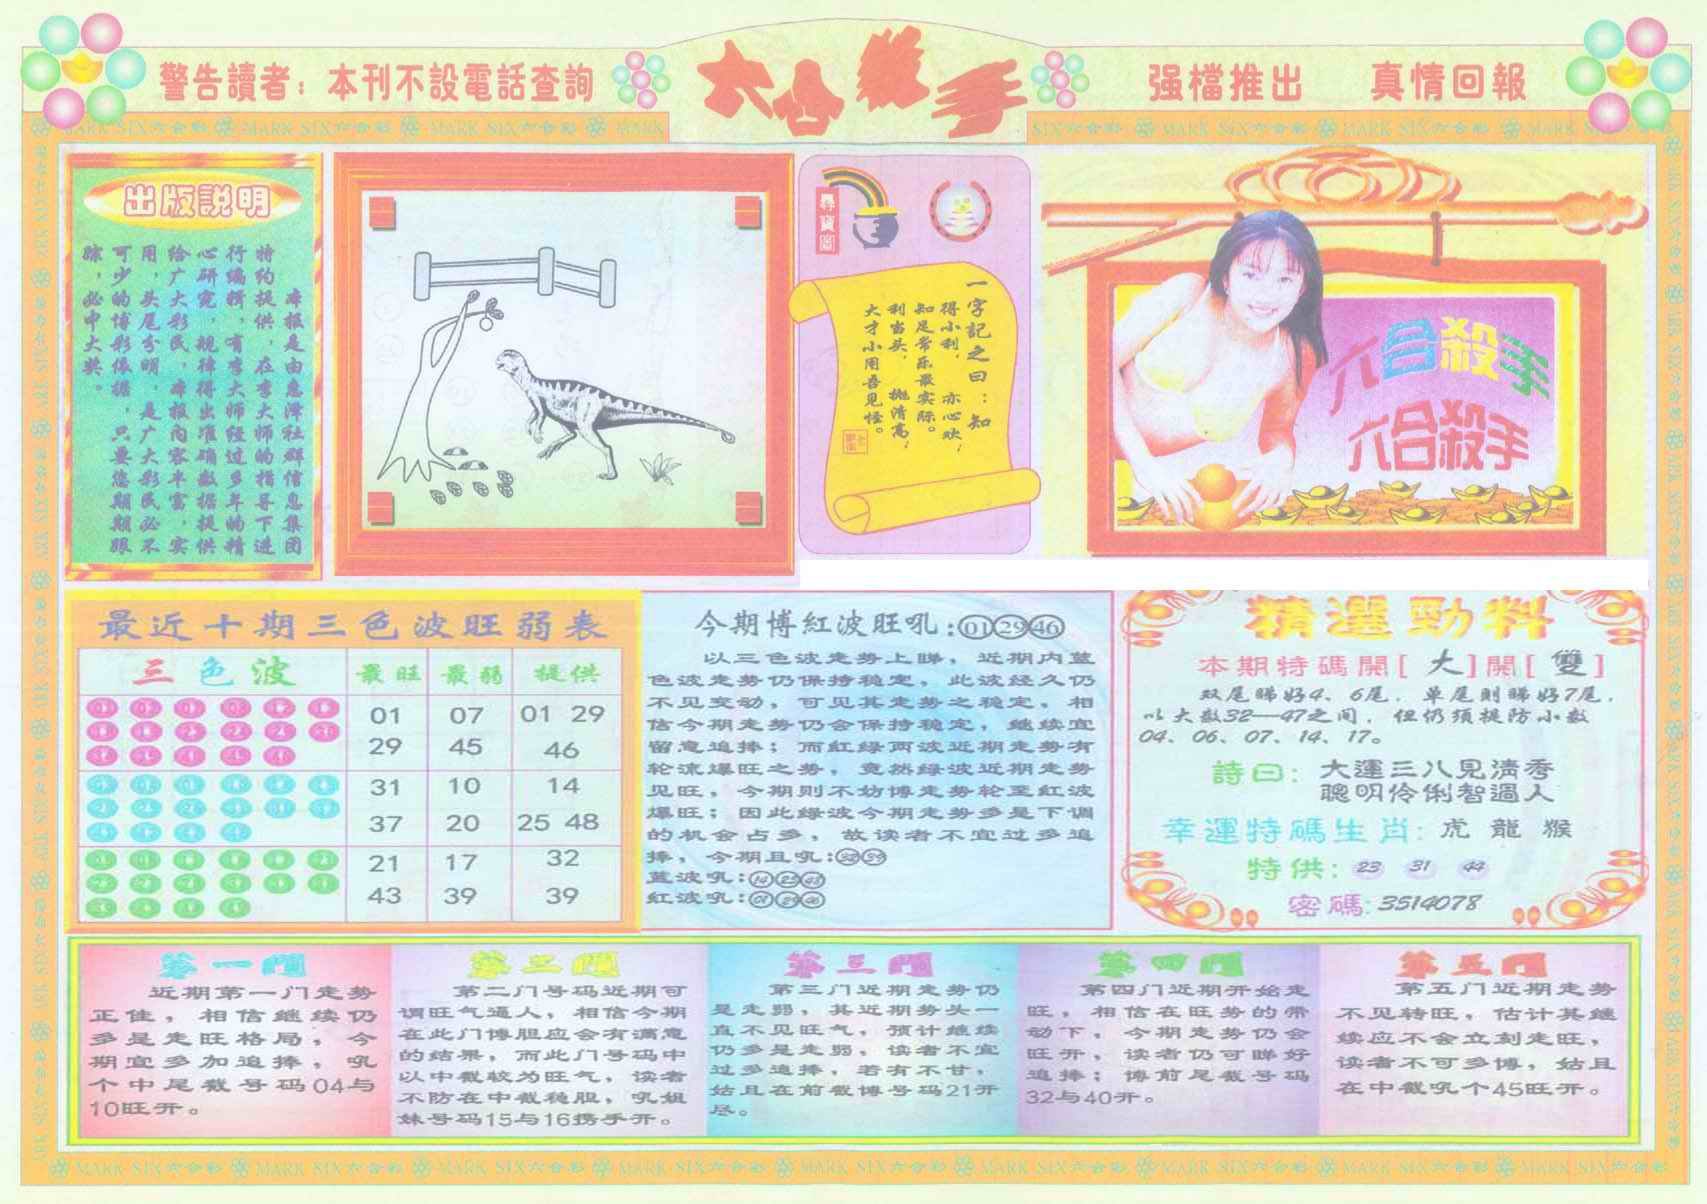 警告讀者：本刊不設電話查詢
六合殺手
强檔推出 真情回報
MARK SIX六合彩
出版説明
本报是由惠泽社群信息集团
特约提供，在李大师的指导下进
行编辑，有李大师经过多年的精
心研究，规律得出准确数据提供
给广大彩民，本报内容丰富，实
用，头尾分明，是广大彩民必不
可少的博彩依据，只要您期期跟
踪，必中大奖。
尋寶圖
一字記之曰：知
得小利，亦心欢，
知足常乐最实际。
利当头，抛清高，
大才小用吾见怪。
六合殺手
六合殺手
最近十期三色波旺弱表
三色波 最旺 最弱 提供
01 07 01 29
29 45 46
31 10 14
37 20 25 48
21 17 32
43 39 39
今期博紅波旺吼:01 29 46
以三色波走势上睇，近期内蓝
色波走势仍保持稳定，此波经久仍
不见变动，可见其走势之稳定，相
信今期走势仍会保持稳定，继续宜
留意追捧；而紅绿两波近期走势有
轮流爆旺之势，竟然绿波近期走势
见旺，今期则不妨博走势轮至紅波
爆旺；因此绿波今期走势多是下调
的机会占多，故读者不宜过多追
捧，今期且吼:32 39
蓝波吼:14 25 48
紅波吼:01 29 46
精選勁料
本期特碼開[大]開[雙]
双尾睇好4、6尾，单尾則睇好7尾，
以大数32—47之间，但仍须提防小数
04、06、07、14、17。
詩曰：大運三八見清秀
聰明伶俐智過人
幸運特碼生肖：虎 龍 猴
特供：23 31 44
密碼：3514078
第一門
近期第一门走势
正佳，相信继续仍
多是走旺格局，今
期宜多加追捧，吼
个中尾截号码04与
10旺开。
第二門
第二门号码近期可
谓旺气逼人，相信今期
在此门博胆应会有满意
的结果，而此门号码中
以中截较为旺气，读者
不防在中截稳胆，吼姐
妹号码15与16携手开。
第三門
第三门近期走势仍
是走弱，其近期势头一
直不见旺气，预计继续
仍多是走弱，读者不宜
过多追捧，若有不甘，
姑且在前截博号码21开
尽。
第四門
第四门近期开始走
旺，相信在旺势的带
动下，今期走势仍会
旺开，读者仍可睇好
追捧；博前尾截号码
32与40开。
第五門
第五门近期走势
不见转旺，估计其继
续应不会立刻走旺，
读者不可多博，姑且
在中截吼个45旺开。
MARK SIX六合彩